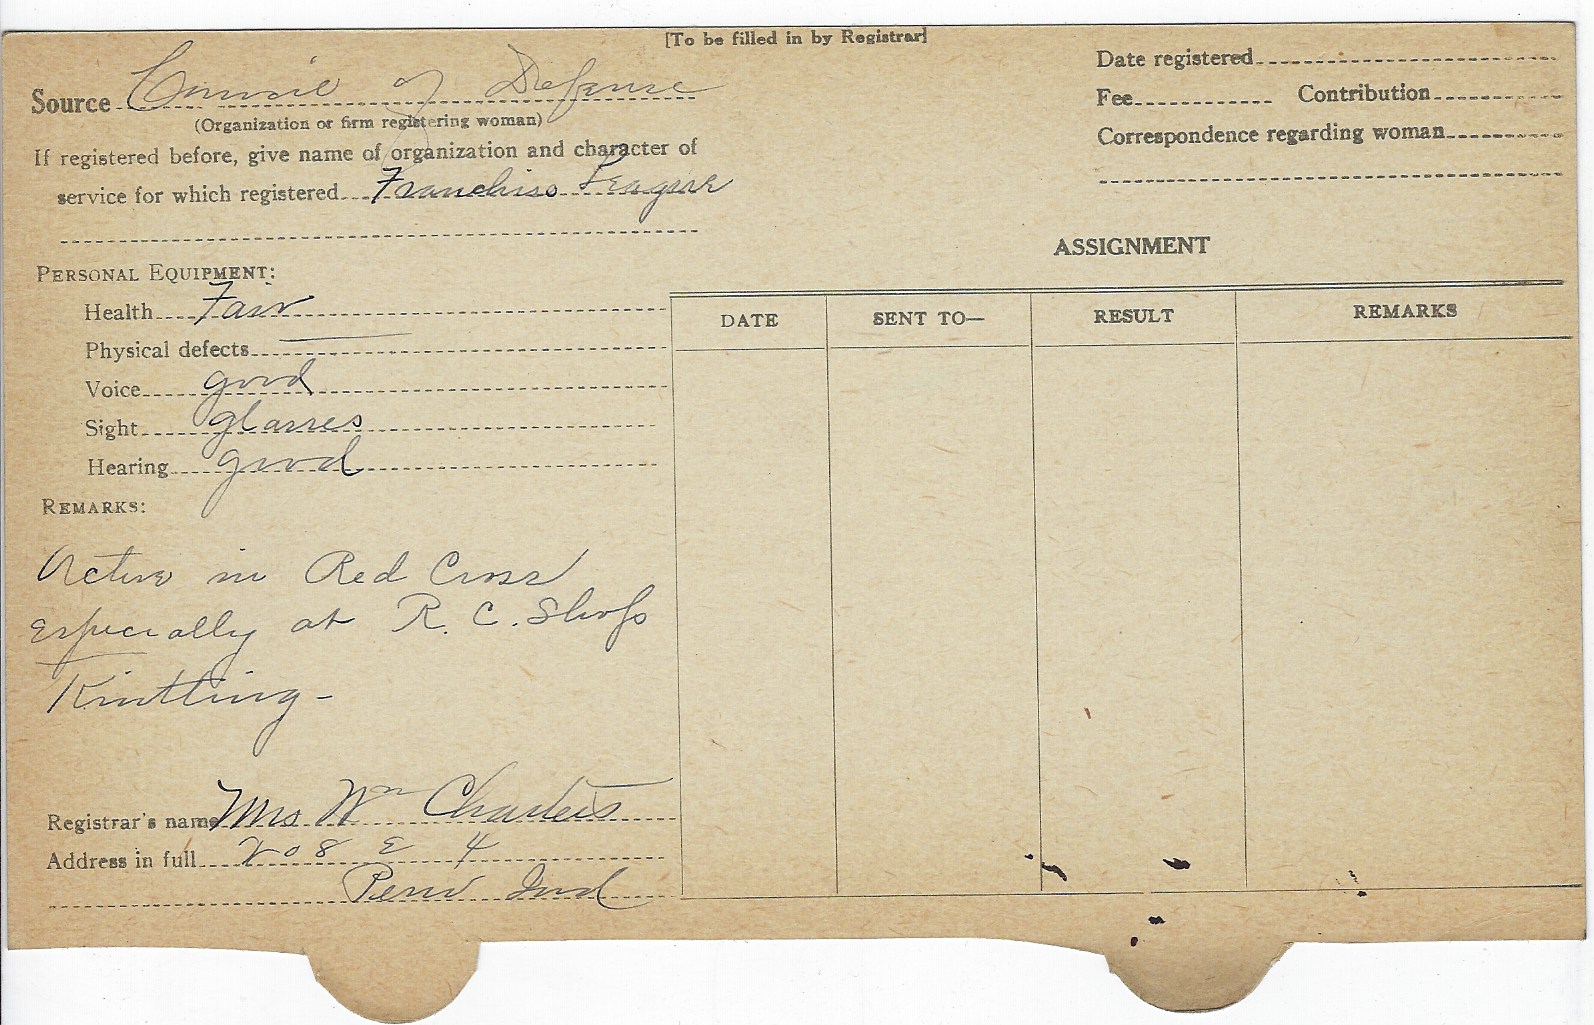 [To be filled in by Registrar]
Source Council of Defense
(Organization or firm registering woman)
If registered before, give name of organization and character of
service for which registered Franchise League
Date registered
Fee Contribution
Correspondence regarding woman
PERSONAL EQUIPMENT:
Health Fair
Physical defects —
Voice good
Sight glasses
Hearing good
REMARKS:
Active in Red Cross
especially at R. C. Shops
Knitting -
Registrar's name Mrs Wm Charters
Address in full 208 E 4
Peru Ind
ASSIGNMENT
DATE SENT TO— RESULT REMARKS